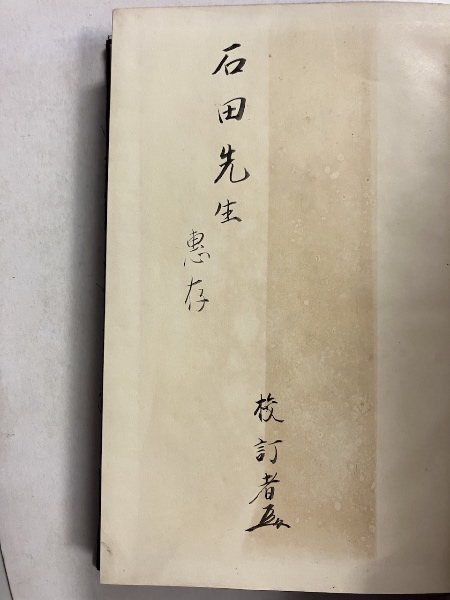 石田先生
惠存
校訂者